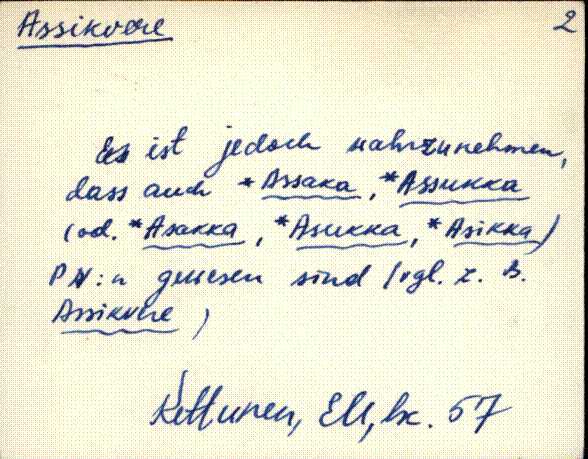 Assikvere 2
Es ist jedoch wahrzunehmen,
dass auch *Assaka, *Assukka
(od. *Asakka, *Asukka, *Asikka)
PN:n gewesen sind (vgl. z. B.
Assikvere)
Kettunen, EU, lk. 57